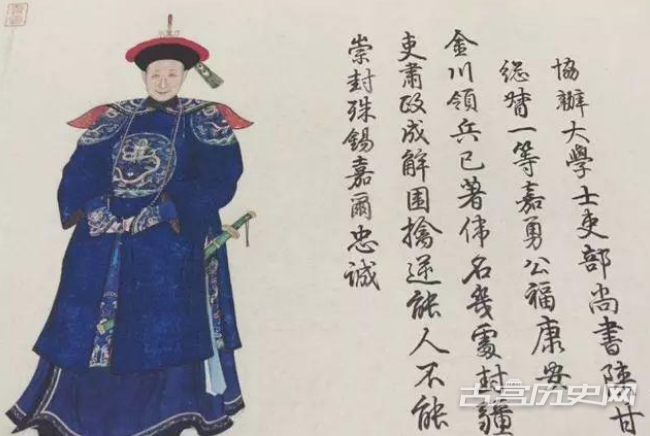 協辦大學士吏部尚書陝甘
總督一等嘉勇公福康安
金川領兵已著偉名幾處封疆
吏肅政成解圍擒逆能人不能
崇封殊錫嘉爾忠誠
古宫历史网